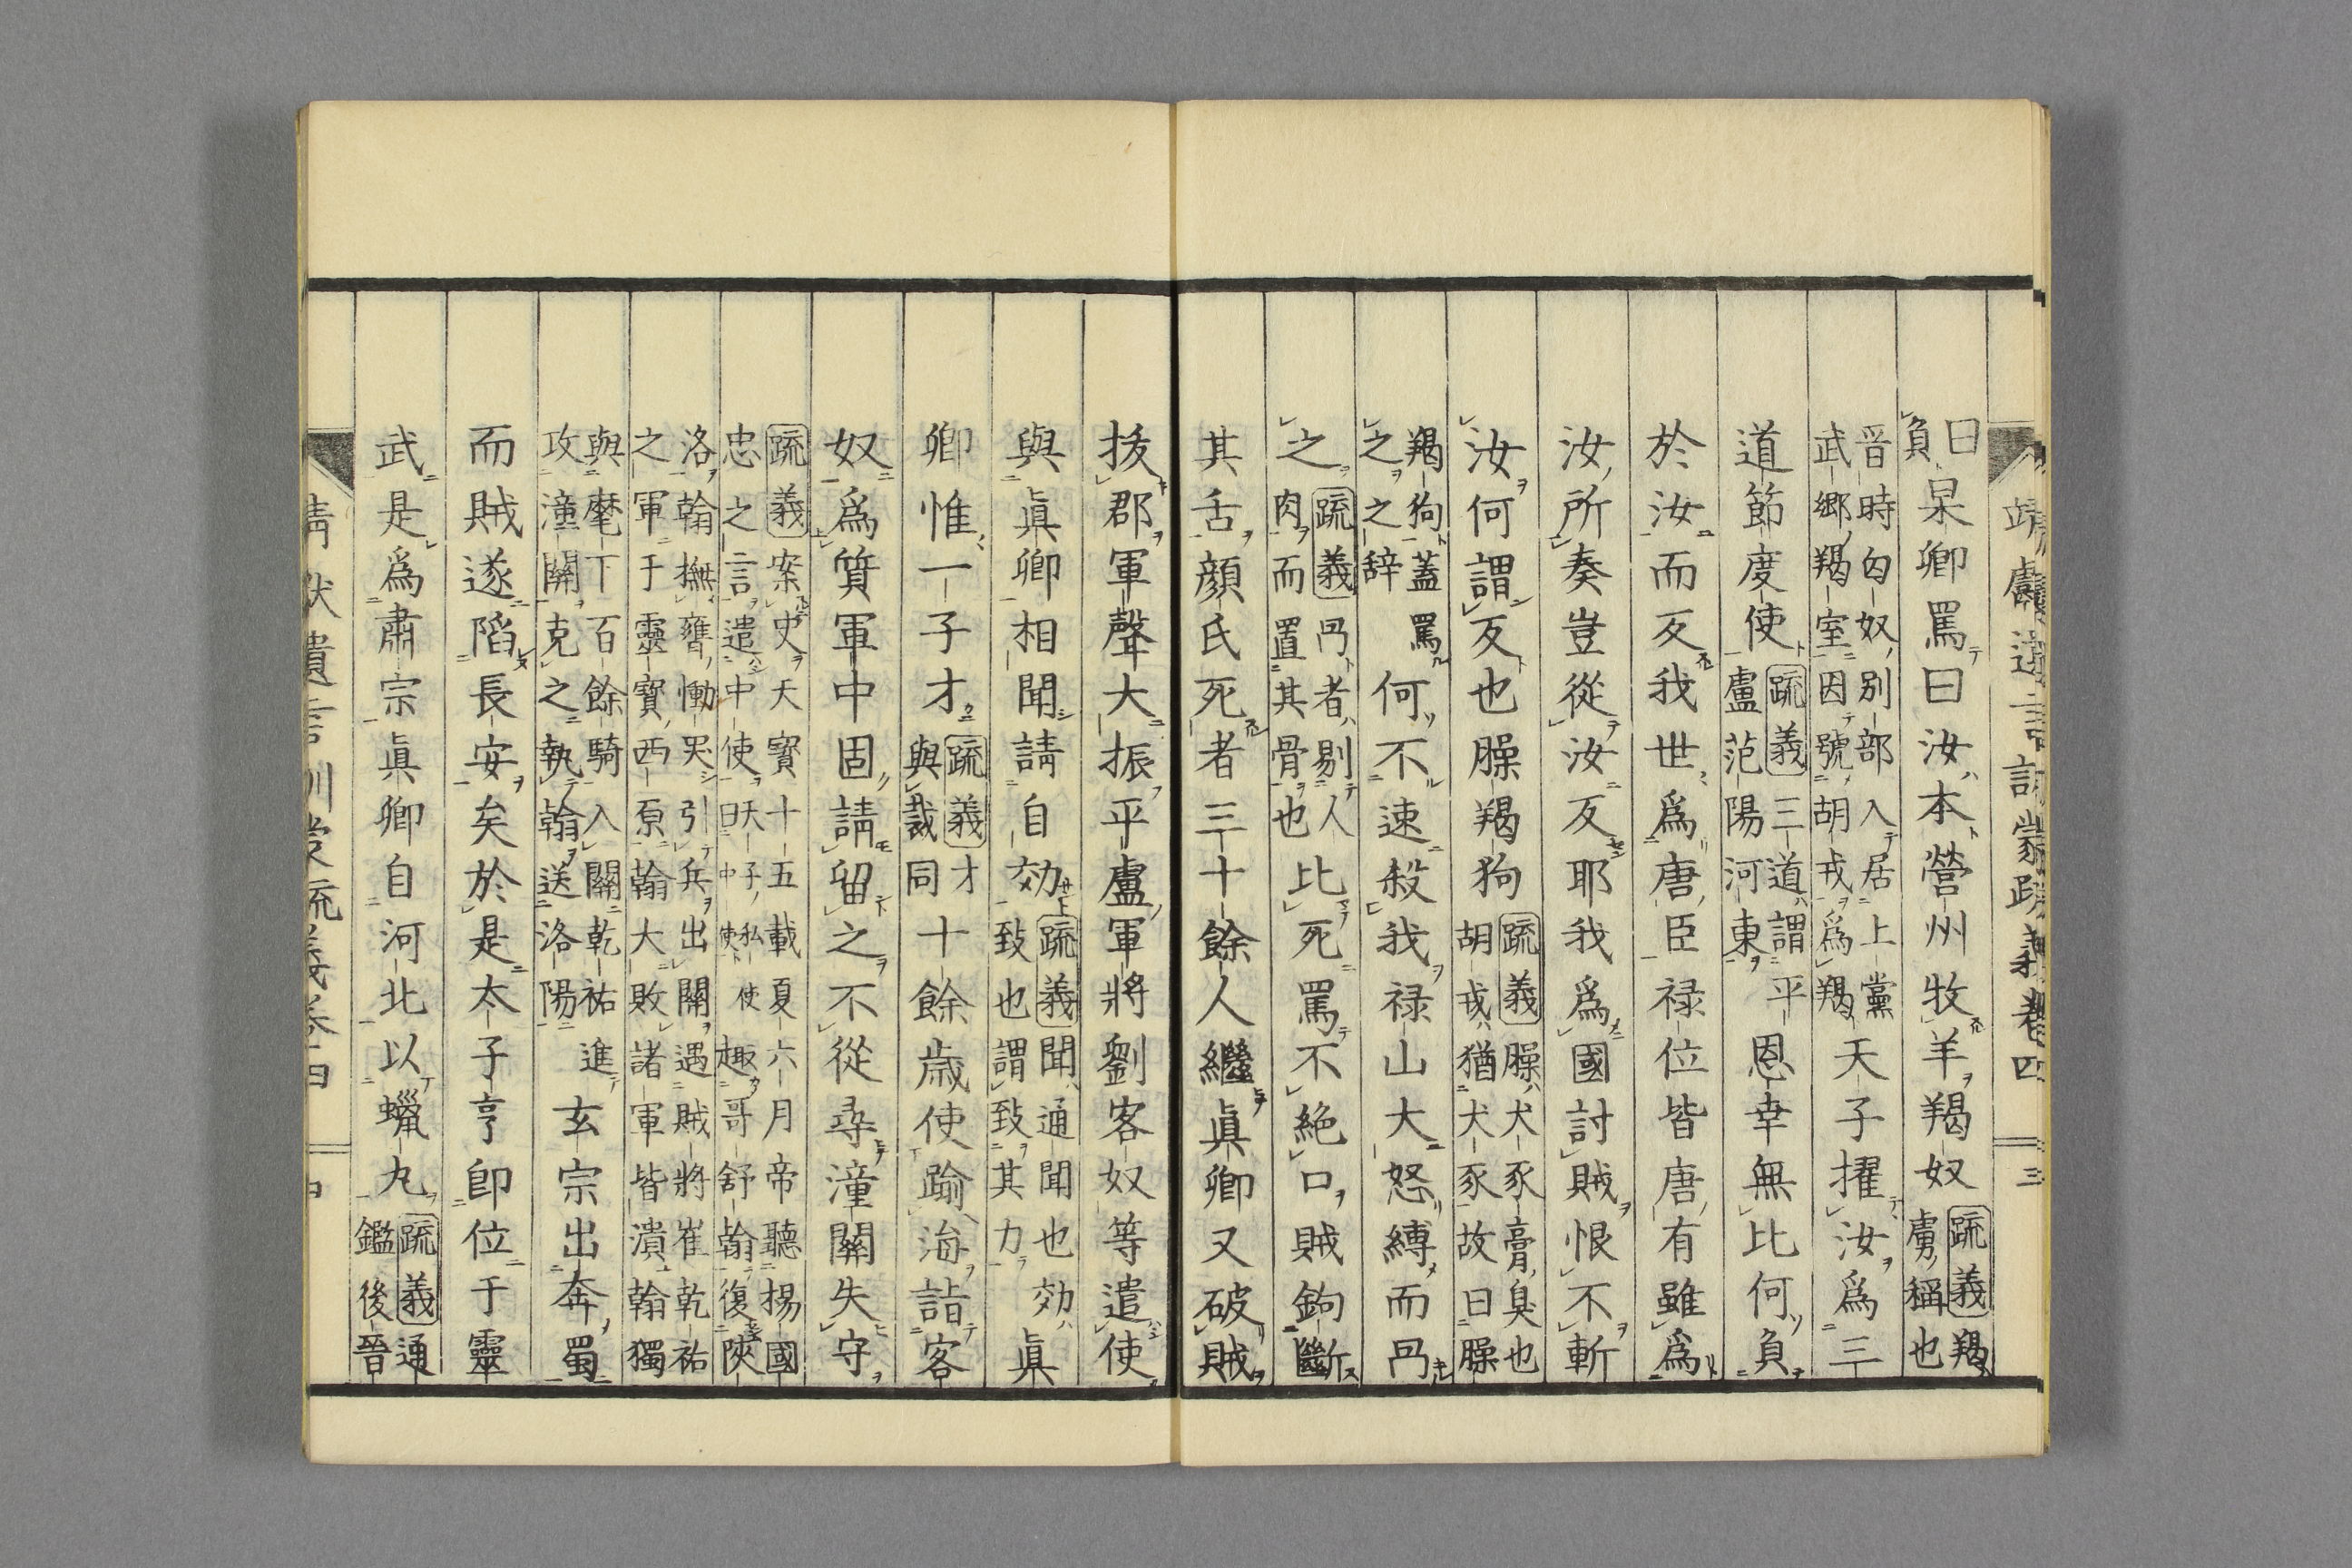 靖獻遺言訓蒙疏義卷四 三
曰
負
杲卿罵曰汝本營州牧羊羯奴
疏義羯
虜稱也
晋時匈奴別部入居上黨
武鄉羯室因號胡戎爲羯
天子擢汝爲三
道節度使
疏義三道謂平
盧范陽河東
恩幸無比何負
於汝而反我世爲唐臣禄位皆唐有雖爲
汝所奏豈從汝反耶我爲國討賊恨不斬
汝何謂反也臊羯狗
疏義臊犬豕膏臭也
胡戎猶犬豕故曰臊
羯狗蓋罵
之之辞
何不速殺我禄山大怒縛而冎
之
疏義冎者剔人
肉而置其骨也
比死罵不絶口賊鉤斷
其舌顔氏死者三十餘人繼眞卿又破賊
拔郡軍聲大振平盧軍將劉客奴等遣使
與眞卿相聞請自効
疏義聞通聞也効
致也謂致其力
眞
卿惟一子才
疏義才
與裁同
十餘歳使踰海詣客
奴爲質軍中固請留之不從尋潼關失守
疏義案史天寳十五載夏六月帝聽楊國
忠之言遣中使
天子私使
曰中使
趣哥舒翰復陝
洛翰撫膺慟哭引兵出關遇賊將崔乾祐
之軍于靈寳西原翰大敗諸軍皆潰翰獨
與麾下百餘騎入關乾祐進
攻潼關克之執翰送洛陽
玄宗出奔蜀
而賊遂陷長安矣於是太子亨卽位于靈
武是爲肅宗眞卿自河北以蠟丸
疏義通
鑑後晋
靖献遺言訓蒙疏義卷四